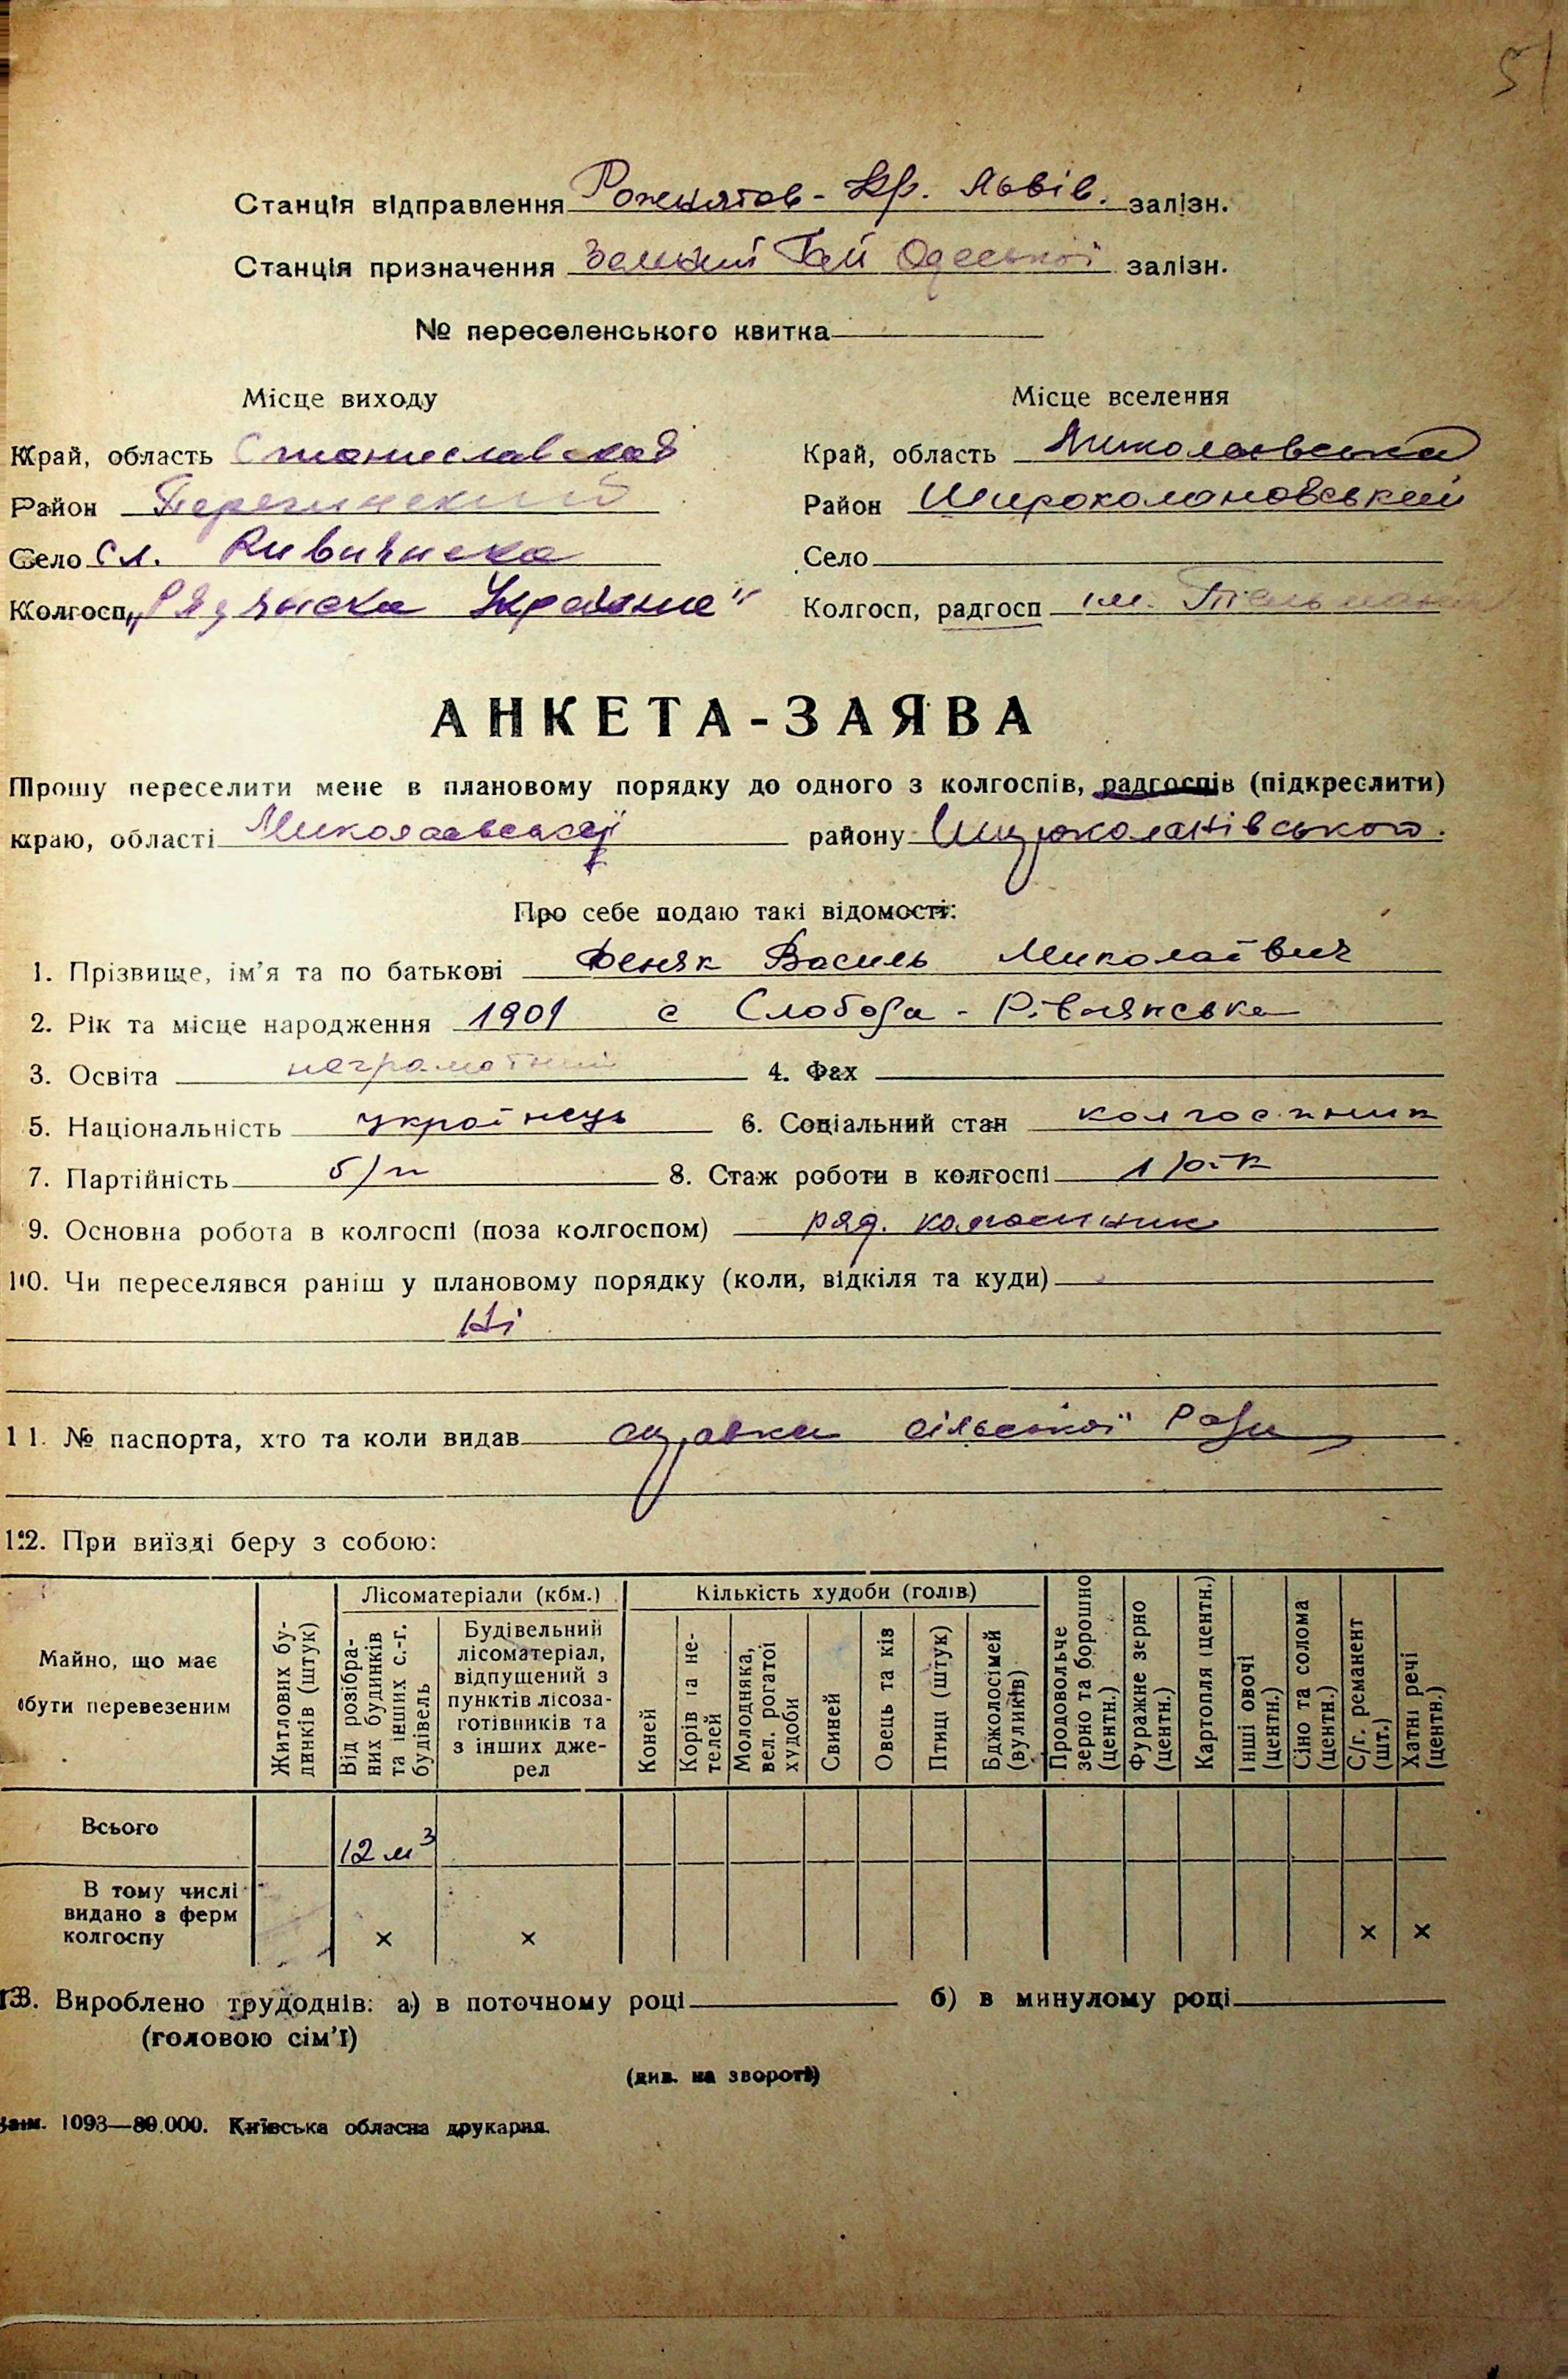 51
Станція відправлення Рожнятов - Кр. Львів. залізн.
Станція призначення Зелений Гай Одеської залізн.
№ переселенського квитка
Місце виходу
Місце вселення
Край, область Станиславская
Край, область Миколаевська
Район Перегинский
Район Широколановський
Село сл. Рівнянска
Село
Колгосп „Радянска Украина"
Колгосп, радгосп ім. Тельмана
АНКЕТА-ЗАЯВА
Прошу переселити мене в плановому порядку до одного з колгоспів, радгоспів (підкреслити)
краю, області Миколаевської району Широколанівського.
Про себе подаю такі відомості:
1. Прізвище, ім'я та по батькові Феняк Василь Миколаївич
2. Рік та місце народження 1901 с Слобода - Рівнянська
3. Освіта неграмотний 4. Фах
5. Національність українець 6. Соціальний стан колгоспник
7. Партійність б/п 8. Стаж роботи в колгоспі 1 рік
9. Основна робота в колгоспі (поза колгоспом) ряд. колгоспник
10. Чи переселявся раніш у плановому порядку (коли, відкіля та куди)
Ні
11. № паспорта, хто та коли видав справка сільської Ради
12. При виїзді беру з собою:
Майно, що має бути перевезеним
Житлових будинків (штук)
Лісоматеріали (кбм.)
Від розібраних будинків та інших с.-г. будівель
Будівельний лісоматеріал, відпущений з пунктів лісозаготівників та з інших джерел
Кількість худоби (голів)
Коней
Корів та нетелей
Молодняка, вел. рогатої худоби
Свиней
Овець та кіз
Птиці (штук)
Бджолосімей (вуликів)
Продовольче зерно та борошно (центн.)
Фуражне зерно (центн.)
Картопля (центн.)
Інші овочі (центн.)
Сіно та солома (центн.)
С/г. реманент (шт.)
Хатні речі (центн.)
Всього 12 м³
В тому числі видано з ферм колгоспу × × × ×
13. Вироблено трудоднів: а) в поточному році б) в минулому році
(головою сім'ї)
(див. на звороті)
Зам. 1093—80.000. Київська обласна друкарня.